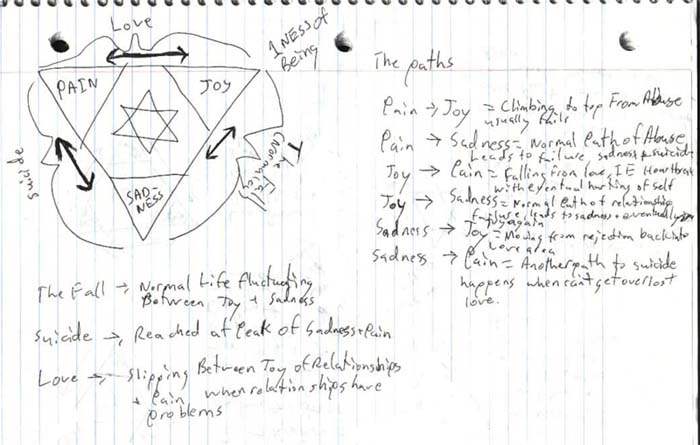 Love
1NESS of
Being
PAIN
JOY
SAD-
NESS
suicide
The Fall
(Normalcy)
The paths
Pain → Joy = Climbing to top From Abuse
usually fails
Pain → Sadness = Normal Path of Abuse
Leads to failure, sadness, & suicide
Joy → Pain = falling from love, IE Heartbreak
with eventual hurting of self
Joy → Sadness = Normal Path of relationship
failure, leads to sadness + eventually
Joy again
Sadness → Joy = Moving from rejection back into
Love area
Sadness → Pain = Another path to suicide
happens when can't get over lost
love.
The Fall → Normal Life fluctuating
Between Joy + Sadness
Suicide → Reached at Peak of Sadness + Pain
Love → Slipping Between Joy of Relationships
+ Pain when relationships have
problems